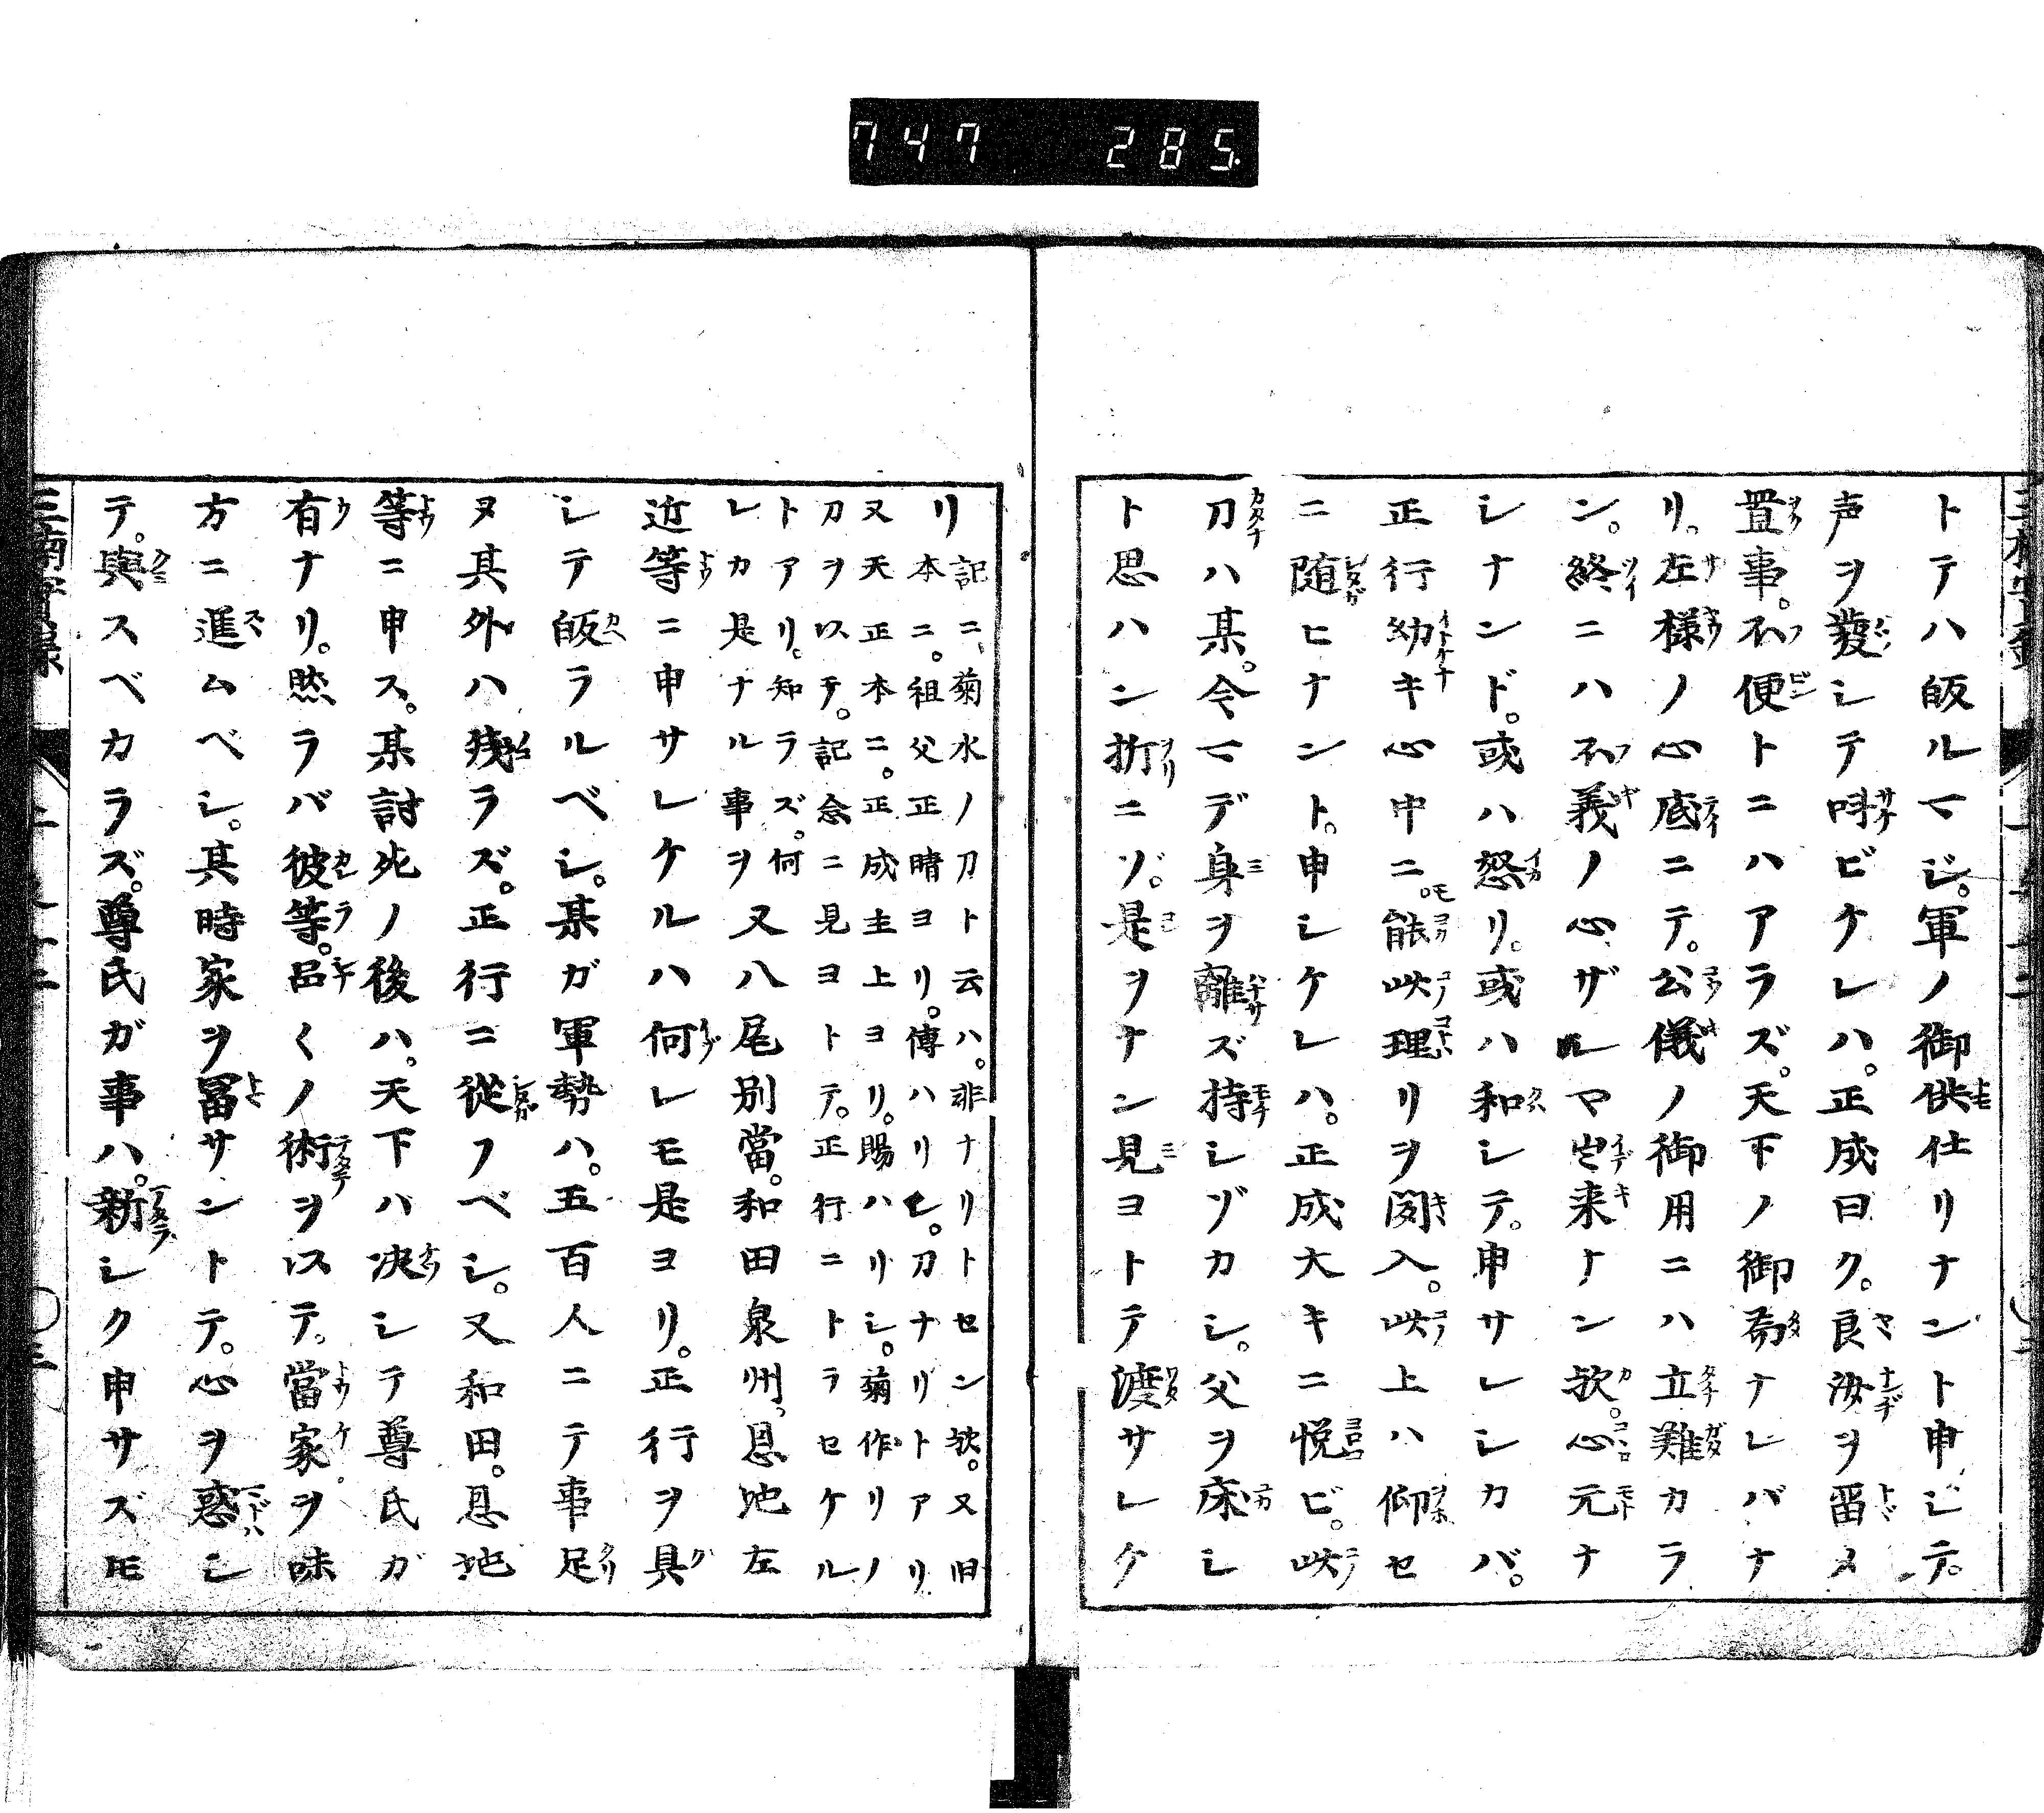 747 285.
トテハ皈ルマジ。軍ノ御供仕リナント申ジテ。
声ヲ發シテ叫ビケレハ。正成曰ク。良汝ヲ畄メ
置事。不便トニハアラズ。天下ノ御為ナレバナ
リ。左様ノ心底ニテ。公儀ノ御用ニハ立難カラ
ン。終ニハ不義ノ心ザルマ出来ナン欤。心元ナ
シナンド。或ハ怒リ。或ハ和シテ。申サレシカバ。
正行幼キ心中ニモ。能此理リヲ聞入。此上ハ仰セ
ニ随ヒナント。申シケレハ。正成大キニ悦ビ。此
刀ハ某。今マデ身ヲ離ズ持シヅカシ。父ヲ床シ
ト思ハン折ニゾ。是ヲナン見ヨトテ渡サレケ
リ
記ニ、菊水ノ刀ト云ハ。非ナリトセン欤。又旧
本ニ。祖父正晴ヨリ。傳ハリヒ。刀ナリトアリ
又天正本ニ。正成主上ヨリ。賜ハリシ。菊作リノ
刀ヲ以テ。記念ニ見ヨトテ。正行ニトラセケル
トアリ。知ラズ。何
レカ是ナル事ヲ
又八尾別當。和田泉州。恩地左
近等ニ申サレケルハ何レモ是ヨリ。正行ヲ具
シテ皈ラルベシ。某ガ軍勢ハ。五百人ニテ事足
ヌ其外ハ残ラズ。正行ニ從フベシ。又和田。恩地
等ニ申ス。某討死ノ後ハ。天下ハ决シテ尊氏ガ
有ナリ。然ラバ彼等。品〱ノ術ヲ以テ。當家ヲ味
方ニ進ムベシ。其時家ヲ冨サントテ。心ヲ惑シ
テ。與スベカラズ。尊氏ガ事ハ。新シク申サズモ